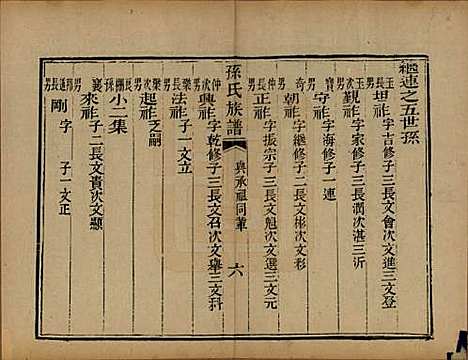 繼連之五世孫
玉長男坦祚字吉修子三長文會次文進三文登
玉次男觀祚字家修子三長潤次湛三沂
寶男守祚字海修子一連
奇男朝祚字繼修子二長文彬次文彩
長男正祚字振宗子三長文魁次文選三文元
仲男興祚字乾修子三長文召次文舉三文科
孫氏族譜
與承祖同輩
六
長男法祚子一文立
榮次男起祚乏嗣
小二集
襄男來祚子二長文貴次文顯
長男剛字 子一文正